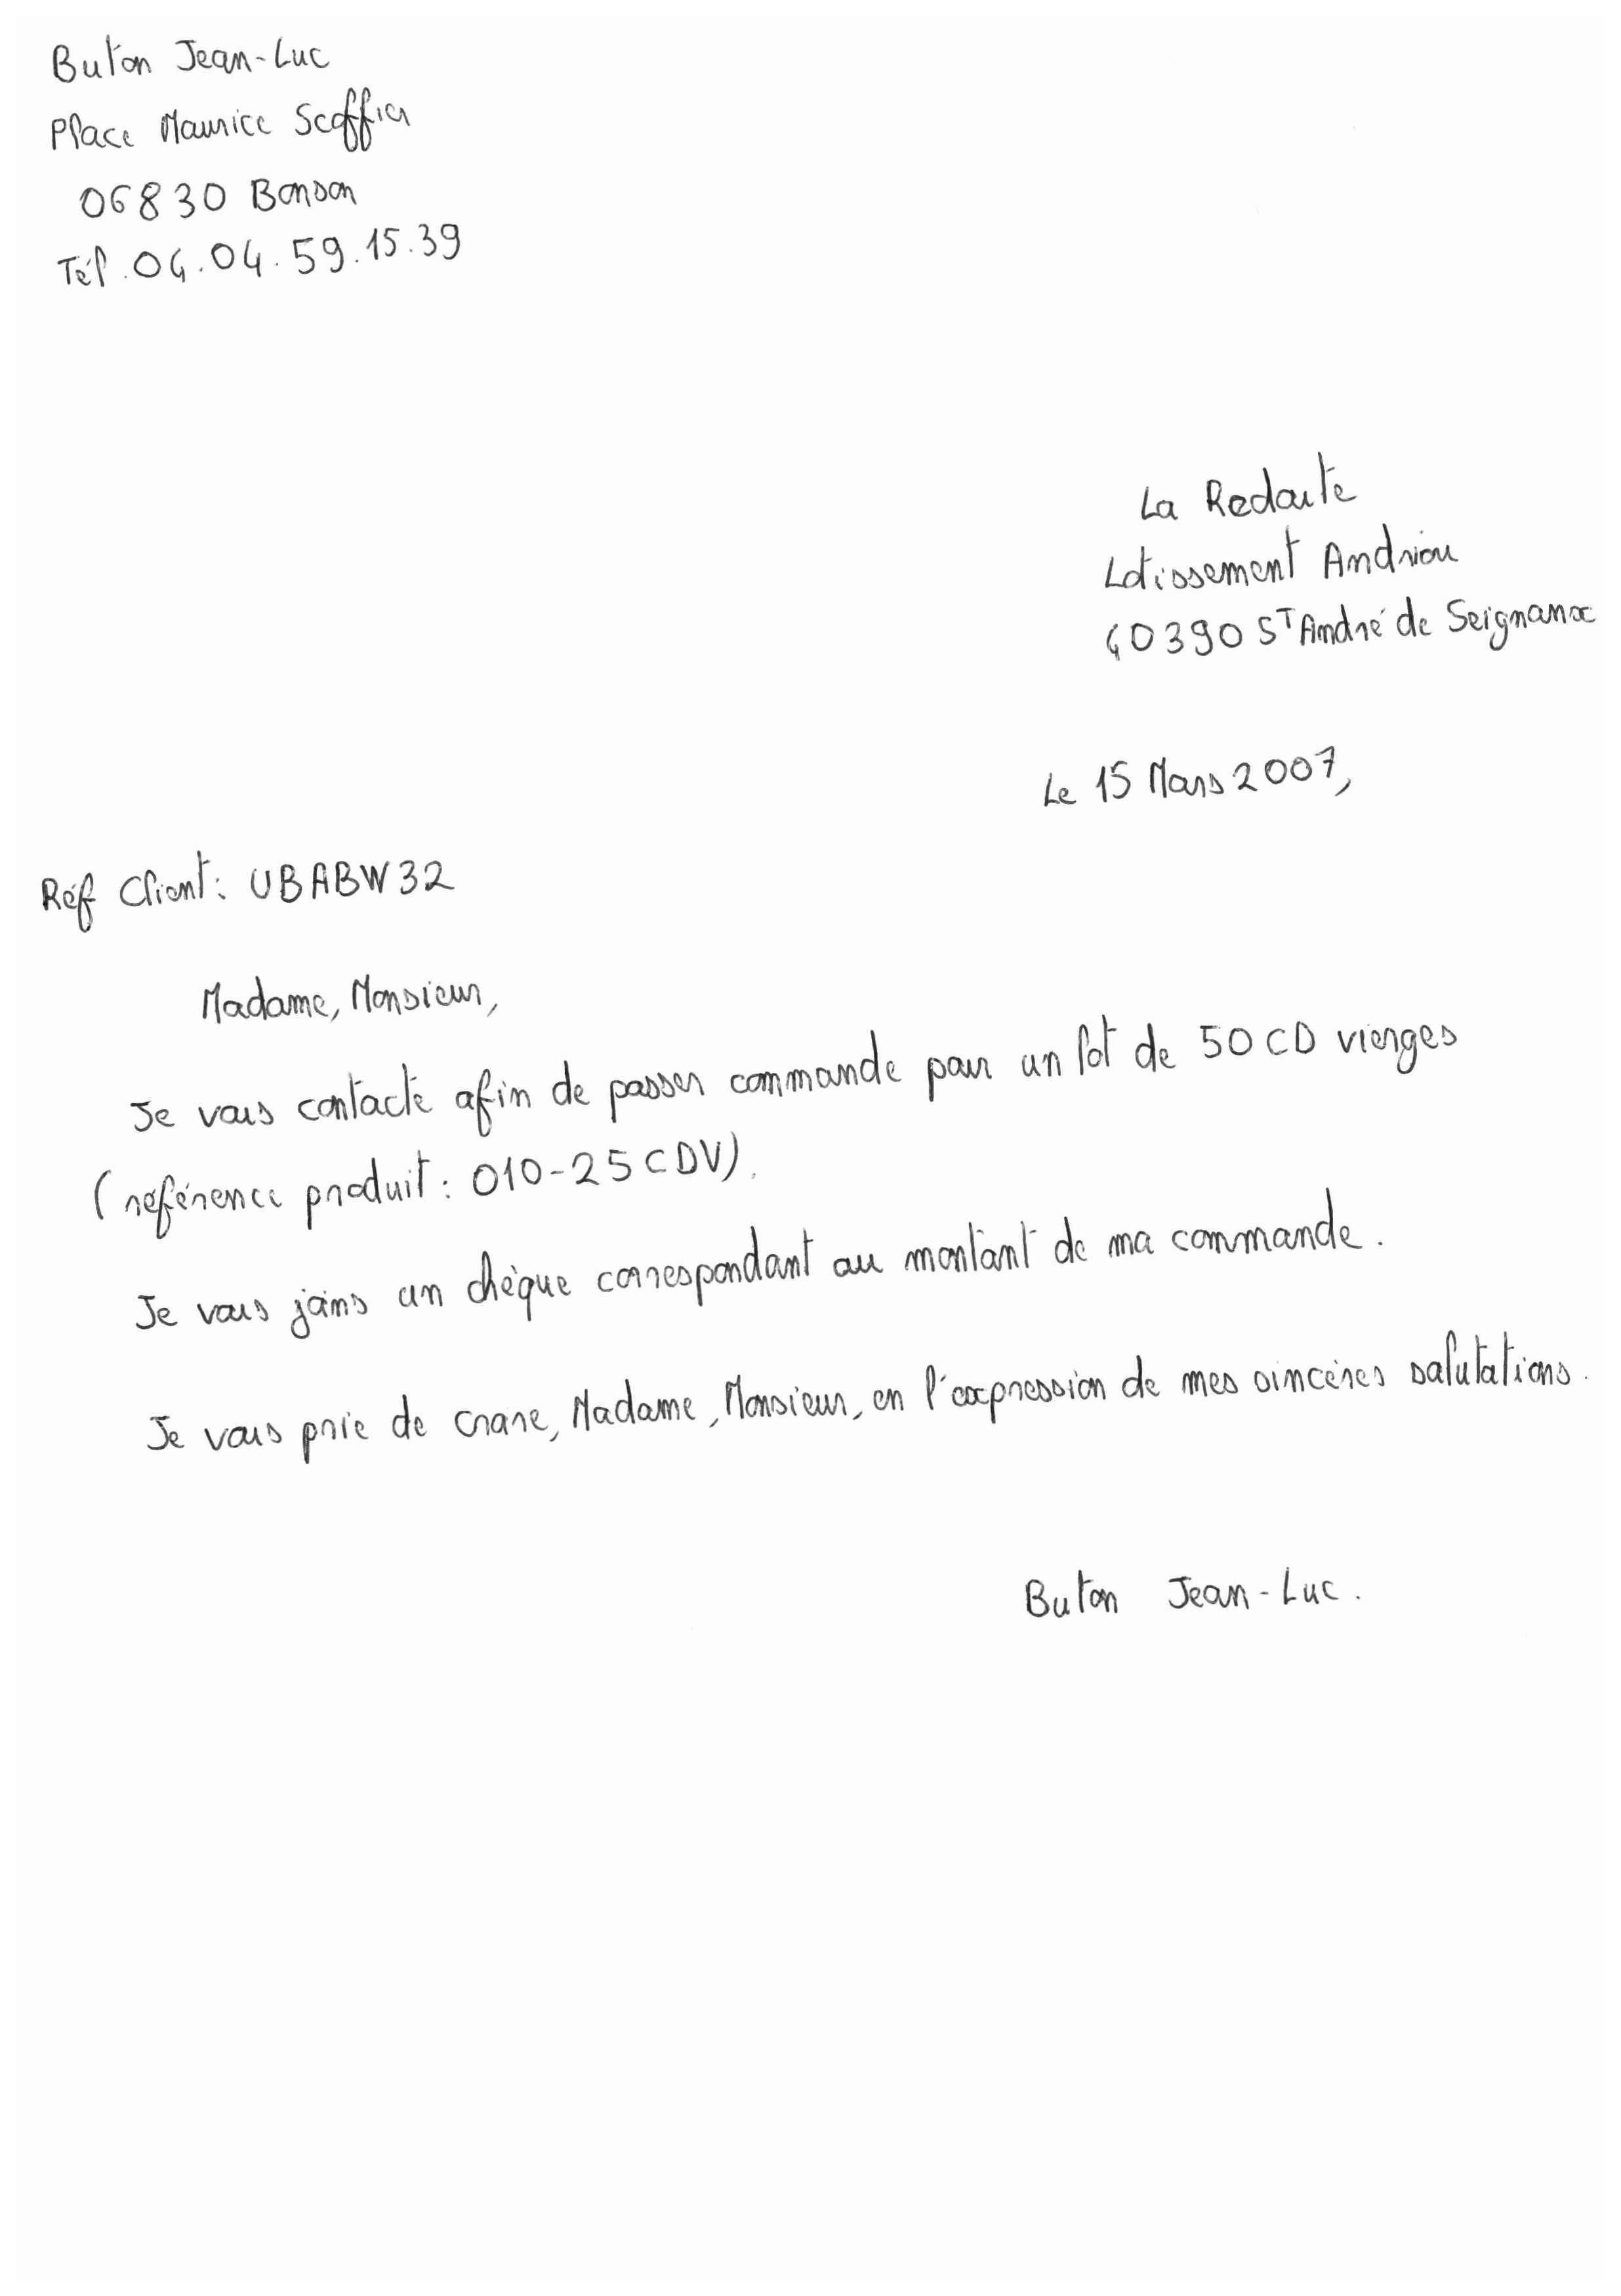 Buton Jean-Luc
Place Maurice Scoffier
06830 Bonson
Tél. 04.04.59.15.39
La Redoute
Lotissement Andriou
40390 St André de Seignanx
Le 15 Mars 2007,
Réf Client : UBABW32
Madame, Monsieur,
Je vous contacte afin de passer commande pour un lot de 50 CD vierges
(référence produit : 010-25CDV).
Je vous joins un chèque correspondant au montant de ma commande.
Je vous prie de croire, Madame, Monsieur, en l'expression de mes sincères salutations.
Buton Jean-Luc.